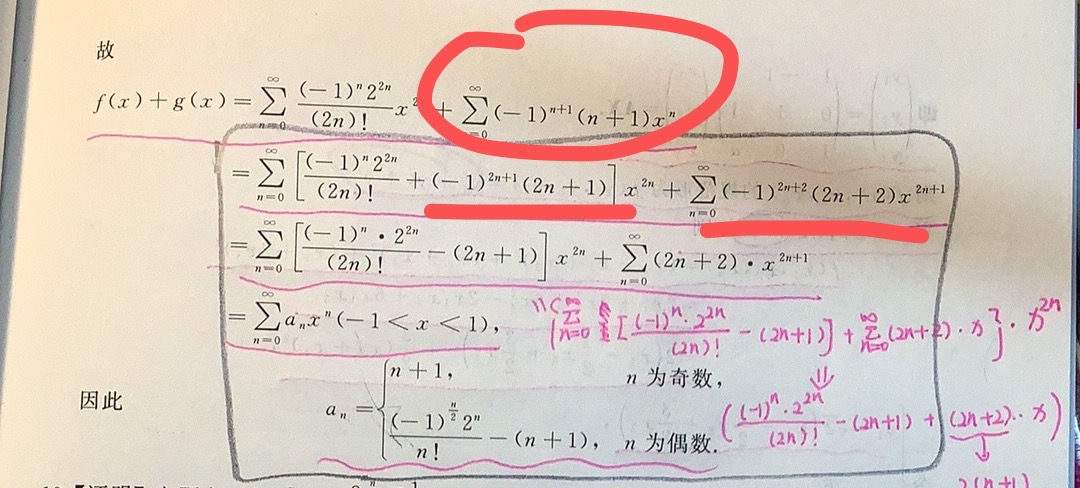 故
f(x)+g(x)=∑_{n=0}^{∞} \frac{(-1)^n 2^{2n}}{(2n)!} x^2 + ∑_{=0}^{∞} (-1)^{n+1}(n+1)x^n
=∑_{n=0}^{∞} [\frac{(-1)^n 2^{2n}}{(2n)!} + (-1)^{2n+1}(2n+1)] x^{2n} + ∑_{n=0}^{∞} (-1)^{2n+2}(2n+2)x^{2n+1}
=∑_{n=0}^{∞} [\frac{(-1)^n · 2^{2n}}{(2n)!} - (2n+1)] x^{2n} + ∑_{n=0}^{∞} (2n+2) · x^{2n+1}
=∑_{n=0}^{∞} a_n x^n (-1<x<1),
{∑_{n=0}^{∞} [\frac{(-1)^n · 2^{2n}}{(2n)!} - (2n+1)] + ∑_{n=0}^{∞} (2n+2) · x} · x^{2n}
因此 a_n = { n+1, n 为奇数,
\frac{(-1)^{\frac{n}{2}} 2^n}{n!} - (n+1), n 为偶数.
⇓
(\frac{(-1)^n · 2^{2n}}{(2n)!} - (2n+1) + (2n+2) · x)
↓
2(n+1)